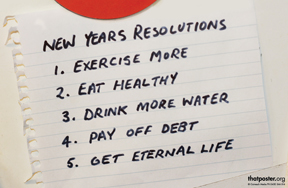 NEW YEARS RESOLUTIONS
1. EXERCISE MORE
2. EAT HEALTHY
3. DRINK MORE WATER
4. PAY OFF DEBT
5. GET ETERNAL LIFE
thatposter.org